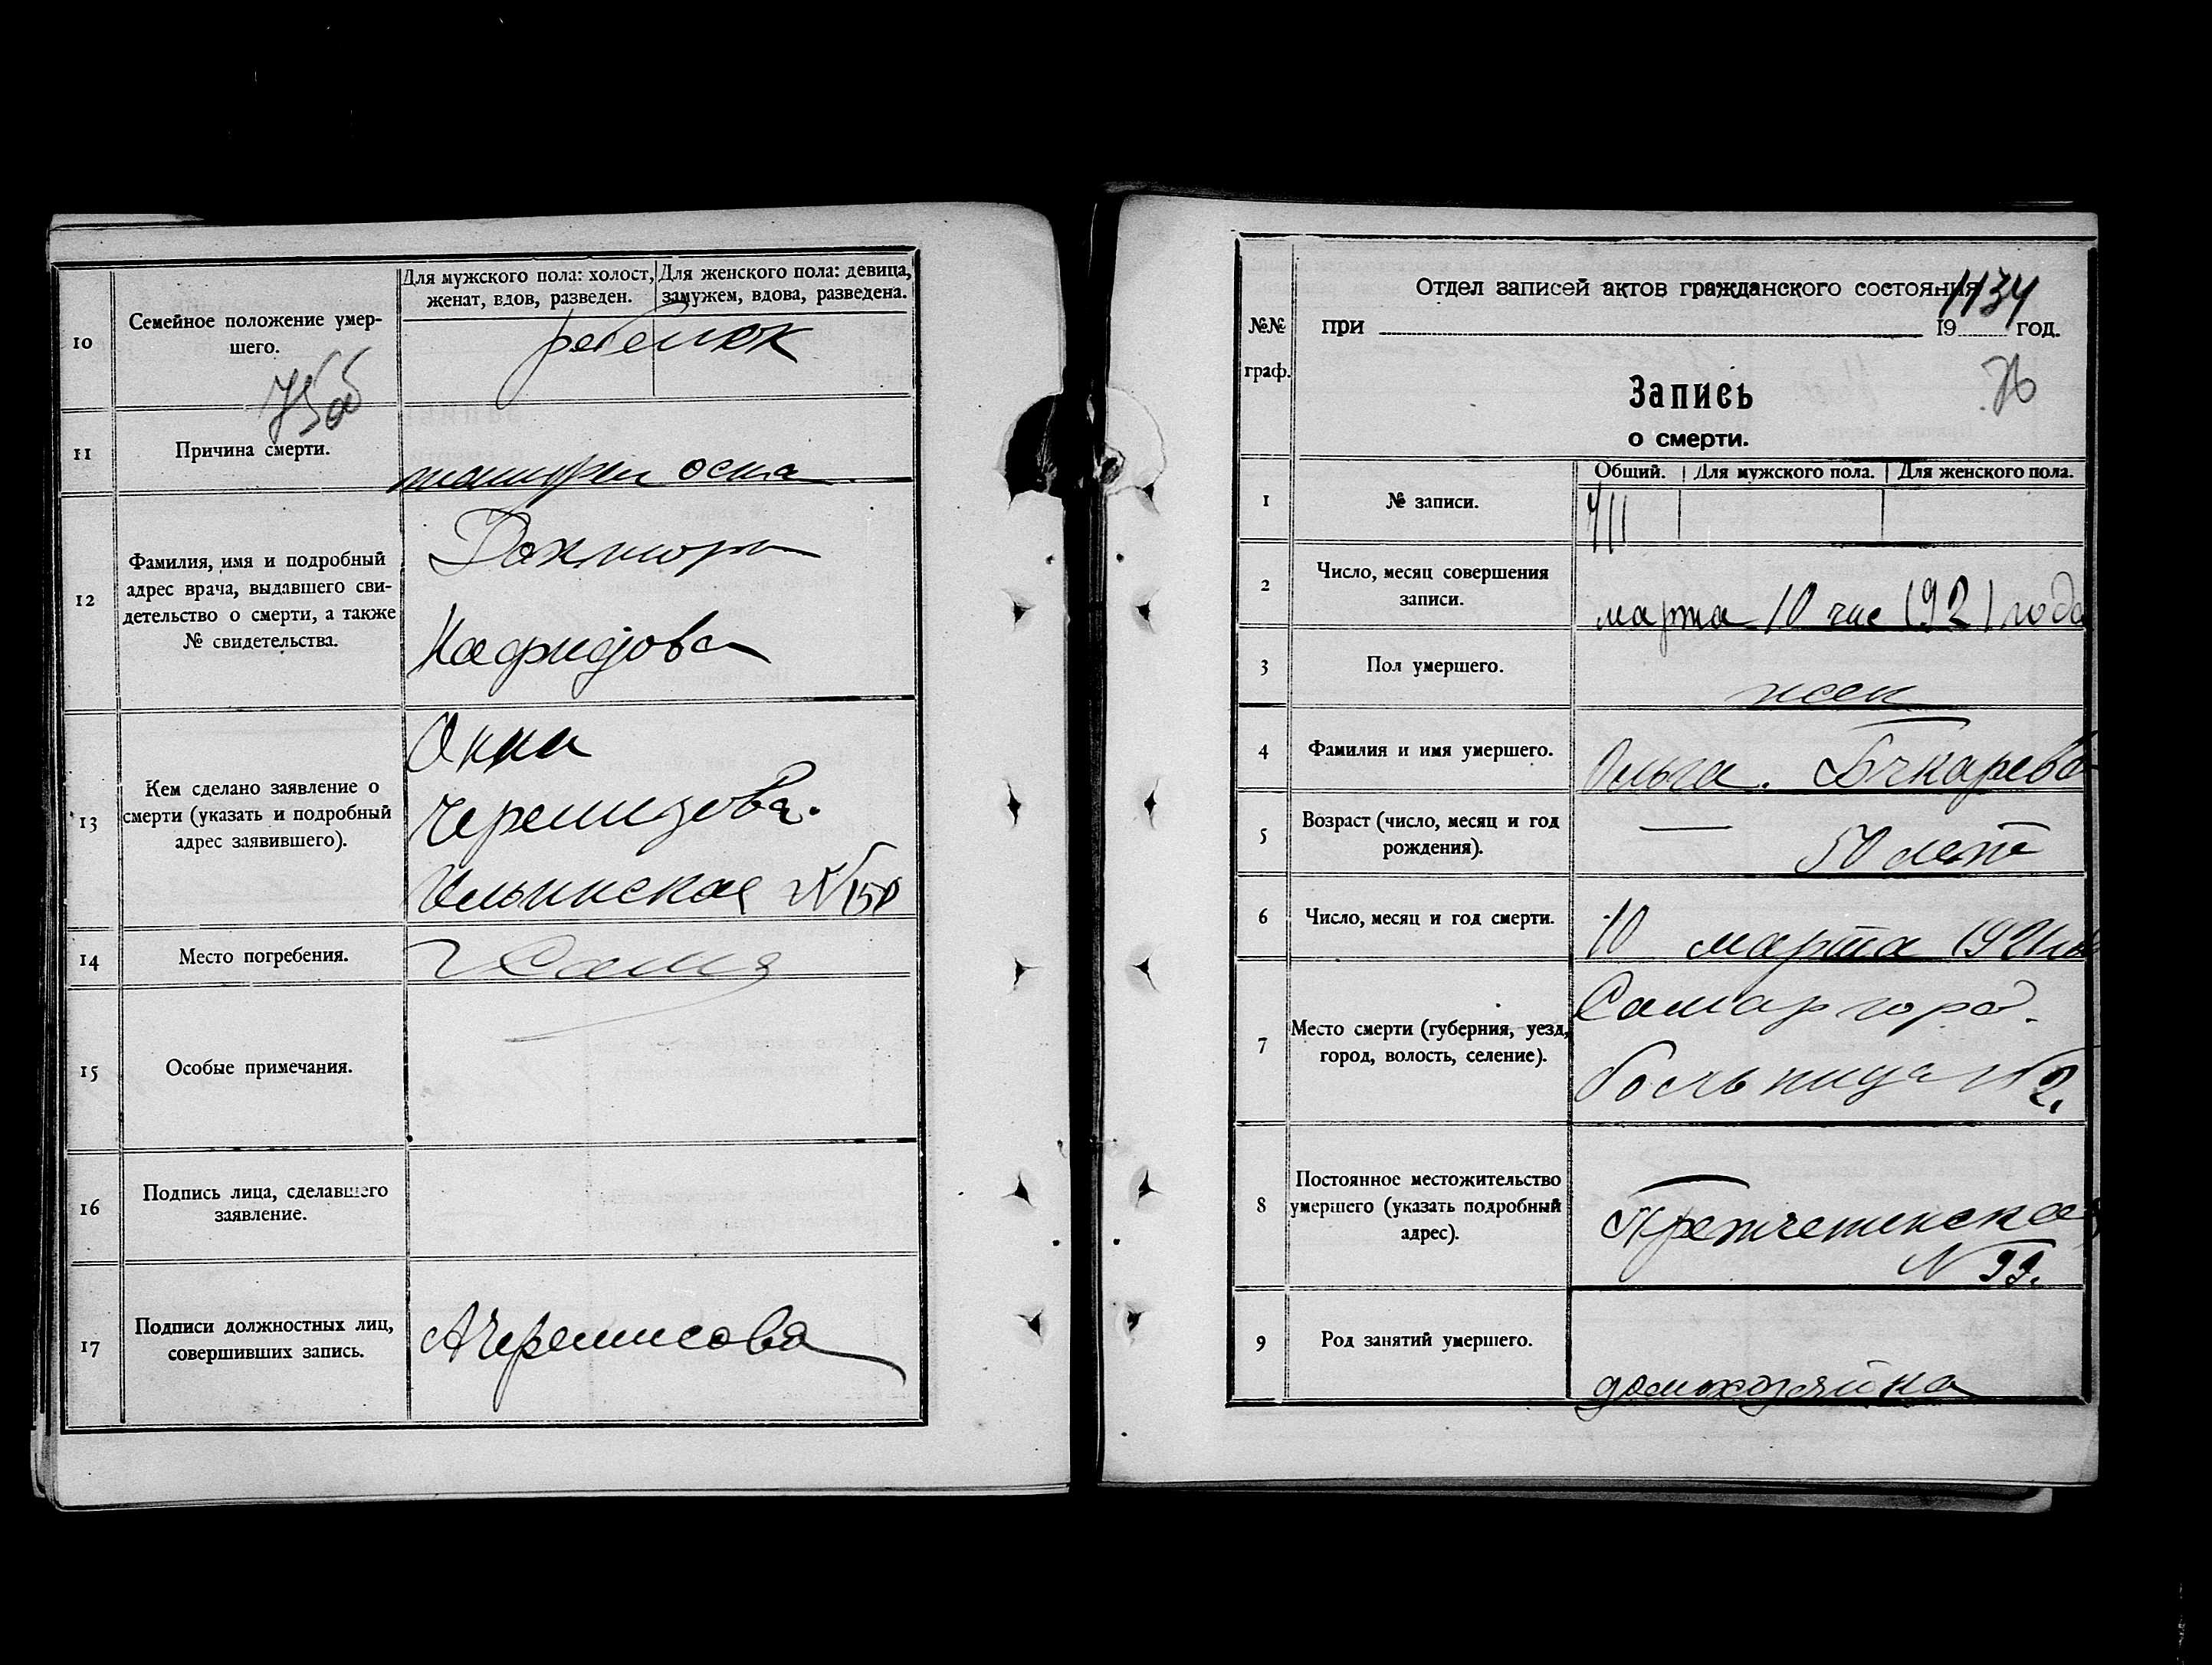 10
Семейное положение умер-
шего.
Для мужского пола: холост,
женат, вдов, разведен.
Для женского пола: девица,
замужем, вдова, разведена.
ребенок
11
Причина смерти.
оспа
12
Фамилия, имя и подробный
адрес врача, выдавшего сви-
детельство о смерти, а также
№ свидетельства.
Доктора
13
Кем сделано заявление о
смерти (указать и подробный
адрес заявившего).
Анна
Ильинская N 150
14
Место погребения.
15
Особые примечания.
16
Подпись лица, сделавшего
заявление.
17
Подписи должностных лиц,
совершивших запись.
АЧеремисова
1134
№№
граф.
Отдел записей актов гражданского состояния
при 19 год.
76
Запись
о смерти.
Общий. Для мужского пола. Для женского пола.
1
№ записи.
711
2
Число, месяц совершения
записи.
марта 10 1921 года
3
Пол умершего.
жен
4
Фамилия и имя умершего.
Ольга.
5
Возраст (число, месяц и год
рождения).
50 лет
6
Число, месяц и год смерти.
10 марта 1921
7
Место смерти (губерния, уезд,
город, волость, селение).
Самар город.
больница N 2.
8
Постоянное местожительство
умершего (указать подробный
адрес).
N 99.
9
Род занятий умершего.
домохозяйка